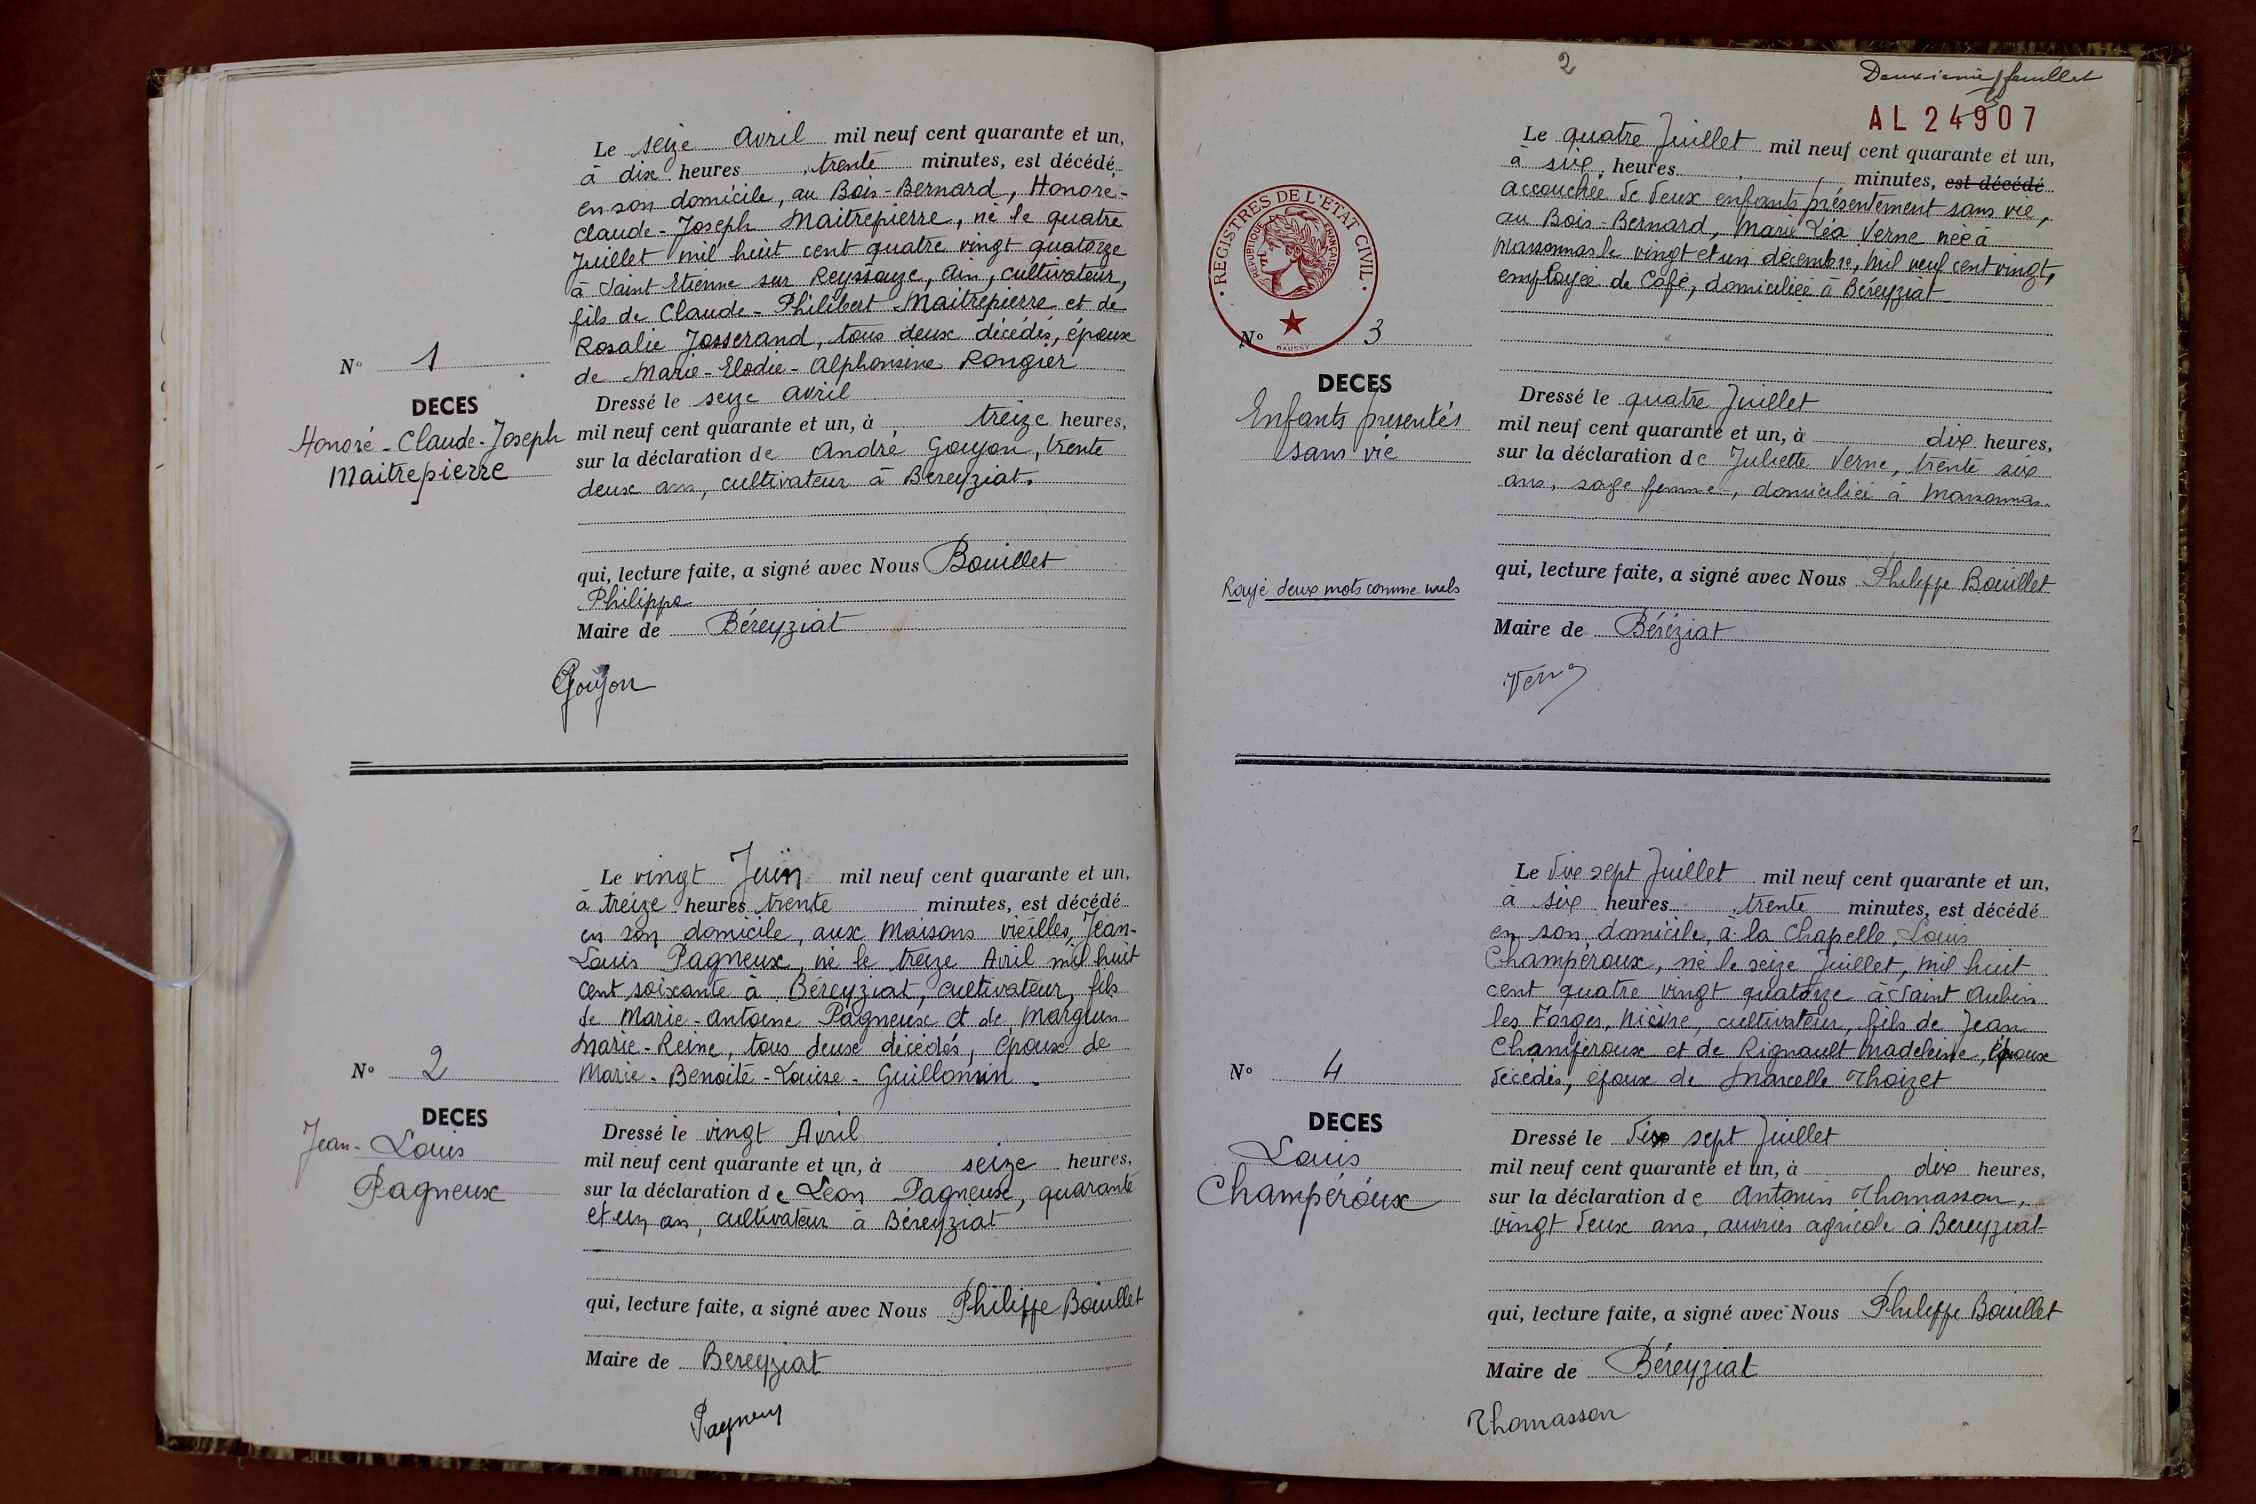 Le seize Avril mil neuf cent quarante et un,
à dix heures trente minutes, est décédé
en son domicile, au Bois-Bernard, Honoré-
Claude-Joseph Maitrepierre, né le quatre
Juillet mil huit cent quatre vingt quatorze
à Saint Etienne sur Reyssouze, Ain, cultivateur,
fils de Claude-Philibert Maitrepierre et de
Rosalie Josserand, tous deux décédés, époux
de Marie-Elodie-Alphonsine Rongier
N° 1
DECES
Honoré-Claude-Joseph
Maitrepierre
Dressé le seize avril
mil neuf cent quarante et un, à treize heures,
sur la déclaration de André Goyon, trente
deux ans, cultivateur à Béreyziat.
qui, lecture faite, a signé avec Nous Bouillet
Philippe
Maire de Béreyziat
Goyon
Le vingt Juin mil neuf cent quarante et un,
à treize heures trente minutes, est décédé
en son domicile, aux Maisons vieilles, Jean-
Louis Pagneux, né le treize Avril mil huit
cent soixante à Béreyziat, cultivateur, fils
de Marie-Antoine Pagneux et de Marguin
Marie-Reine, tous deux décédés, époux de
Marie-Benoîte-Louise-Guillomin
N° 2
DECES
Jean-Louis
Pagneux
Dressé le vingt Avril
mil neuf cent quarante et un, à seize heures,
sur la déclaration de Léon Pagneux, quarante
et un an, cultivateur à Béreyziat
qui, lecture faite, a signé avec Nous Philippe Bouillet
Maire de Bereyziat
Pagneux
2
Deuxième feuillet
AL 24907
Le quatre Juillet mil neuf cent quarante et un,
à six heures minutes, est décédé
accouchée de deux enfants présentement sans vie,
au Bois-Bernard, Marie Léa Verne née à
Marsonnas le vingt et un décembre, mil neuf cent vingt,
employée de Café, domiciliée à Béreyziat
REGISTRES DE L'ETAT CIVIL
REPUBLIQUE FRANÇAISE
N° 3
DECES
Enfants présentés
sans vie
Dressé le quatre Juillet
mil neuf cent quarante et un, à dix heures,
sur la déclaration de Juliette Verne, trente six
ans, sage femme, domiciliée à Marsonnas
qui, lecture faite, a signé avec Nous Philippe Bouillet
Rayé deux mots comme nuls
Maire de Béréziat
Verne
Le dix sept Juillet mil neuf cent quarante et un,
à six heures trente minutes, est décédé
en son domicile, à la Chapelle, Louis
Champéroux, né le seize Juillet, mil huit
cent quatre vingt quatorze à Saint Aubin
les Forges, Nièvre, cultivateur, fils de Jean
Champéroux et de Rignault Madeleine, époux
décédés, époux de Marcelle Thoizet
N° 4
DECES
Louis
Champéroux
Dressé le dix sept Juillet
mil neuf cent quarante et un, à dix heures,
sur la déclaration de Antonin Thomasson,
vingt deux ans, ouvrier agricole à Bereyziat
qui, lecture faite, a signé avec Nous Philippe Bouillet
Maire de Béreyziat
Thomasson